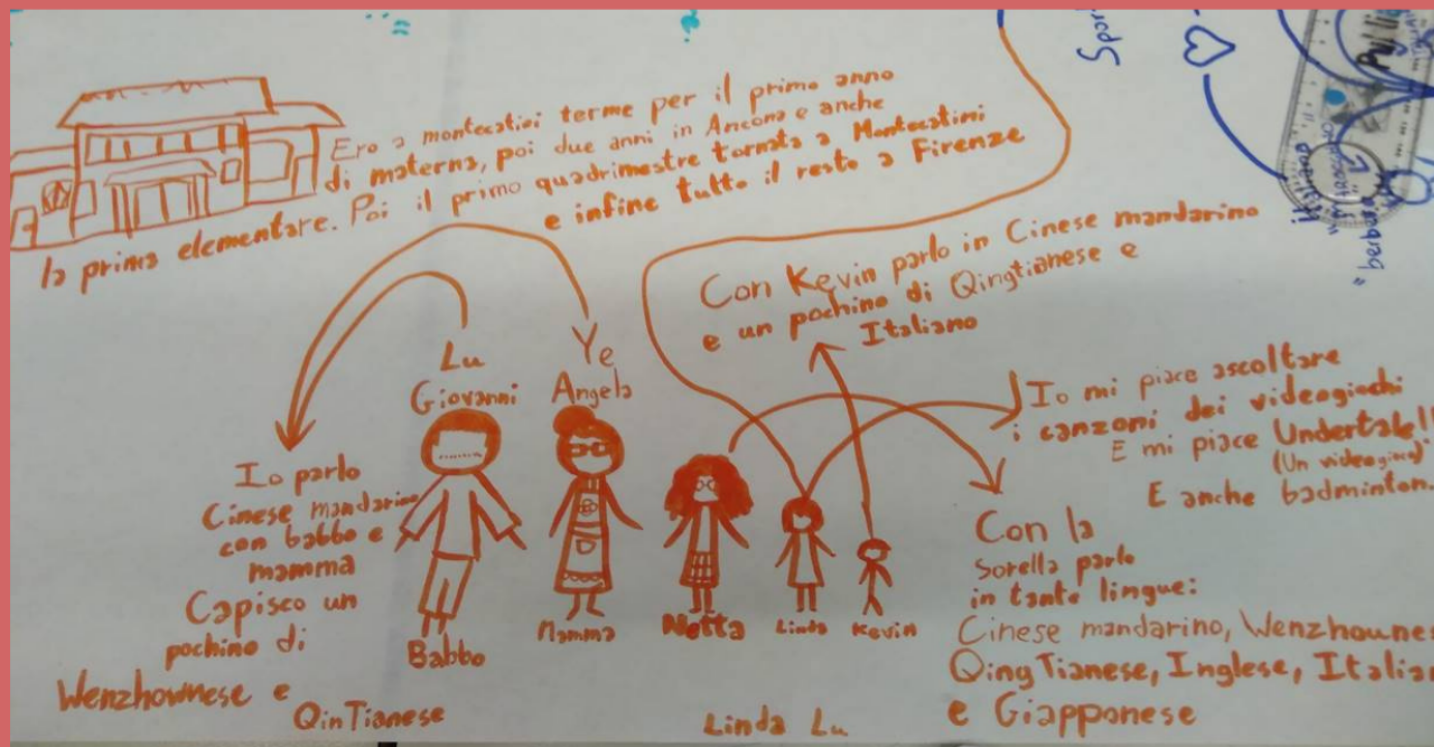 Ero a montecatini terme per il primo anno
di materna, poi due anni in Ancona e anche
la prima elementare. Poi il primo quadrimestre tornata a Montecatini
e infine tutto il resto a Firenze
Con Kevin parlo in Cinese mandarino
e un pochino di Qingtianese e
Italiano
Lu
Giovanni
Ye
Angela
Io mi piace ascoltare
i canzoni dei videogiochi
E mi piace Undertale!!
(Un videogioco)
E anche badminton.
Io parlo
Cinese mandarino
con babbo e
mamma
Capisco un
pochino di
Wenzhounese e
QinTianese
Babbo
Mamma
Netta
Linda
Kevin
Con la
Sorella parlo
in tante lingue:
Cinese mandarino, Wenzhounes
QingTianese, Inglese, Italian
e Giapponese
Linda Lu